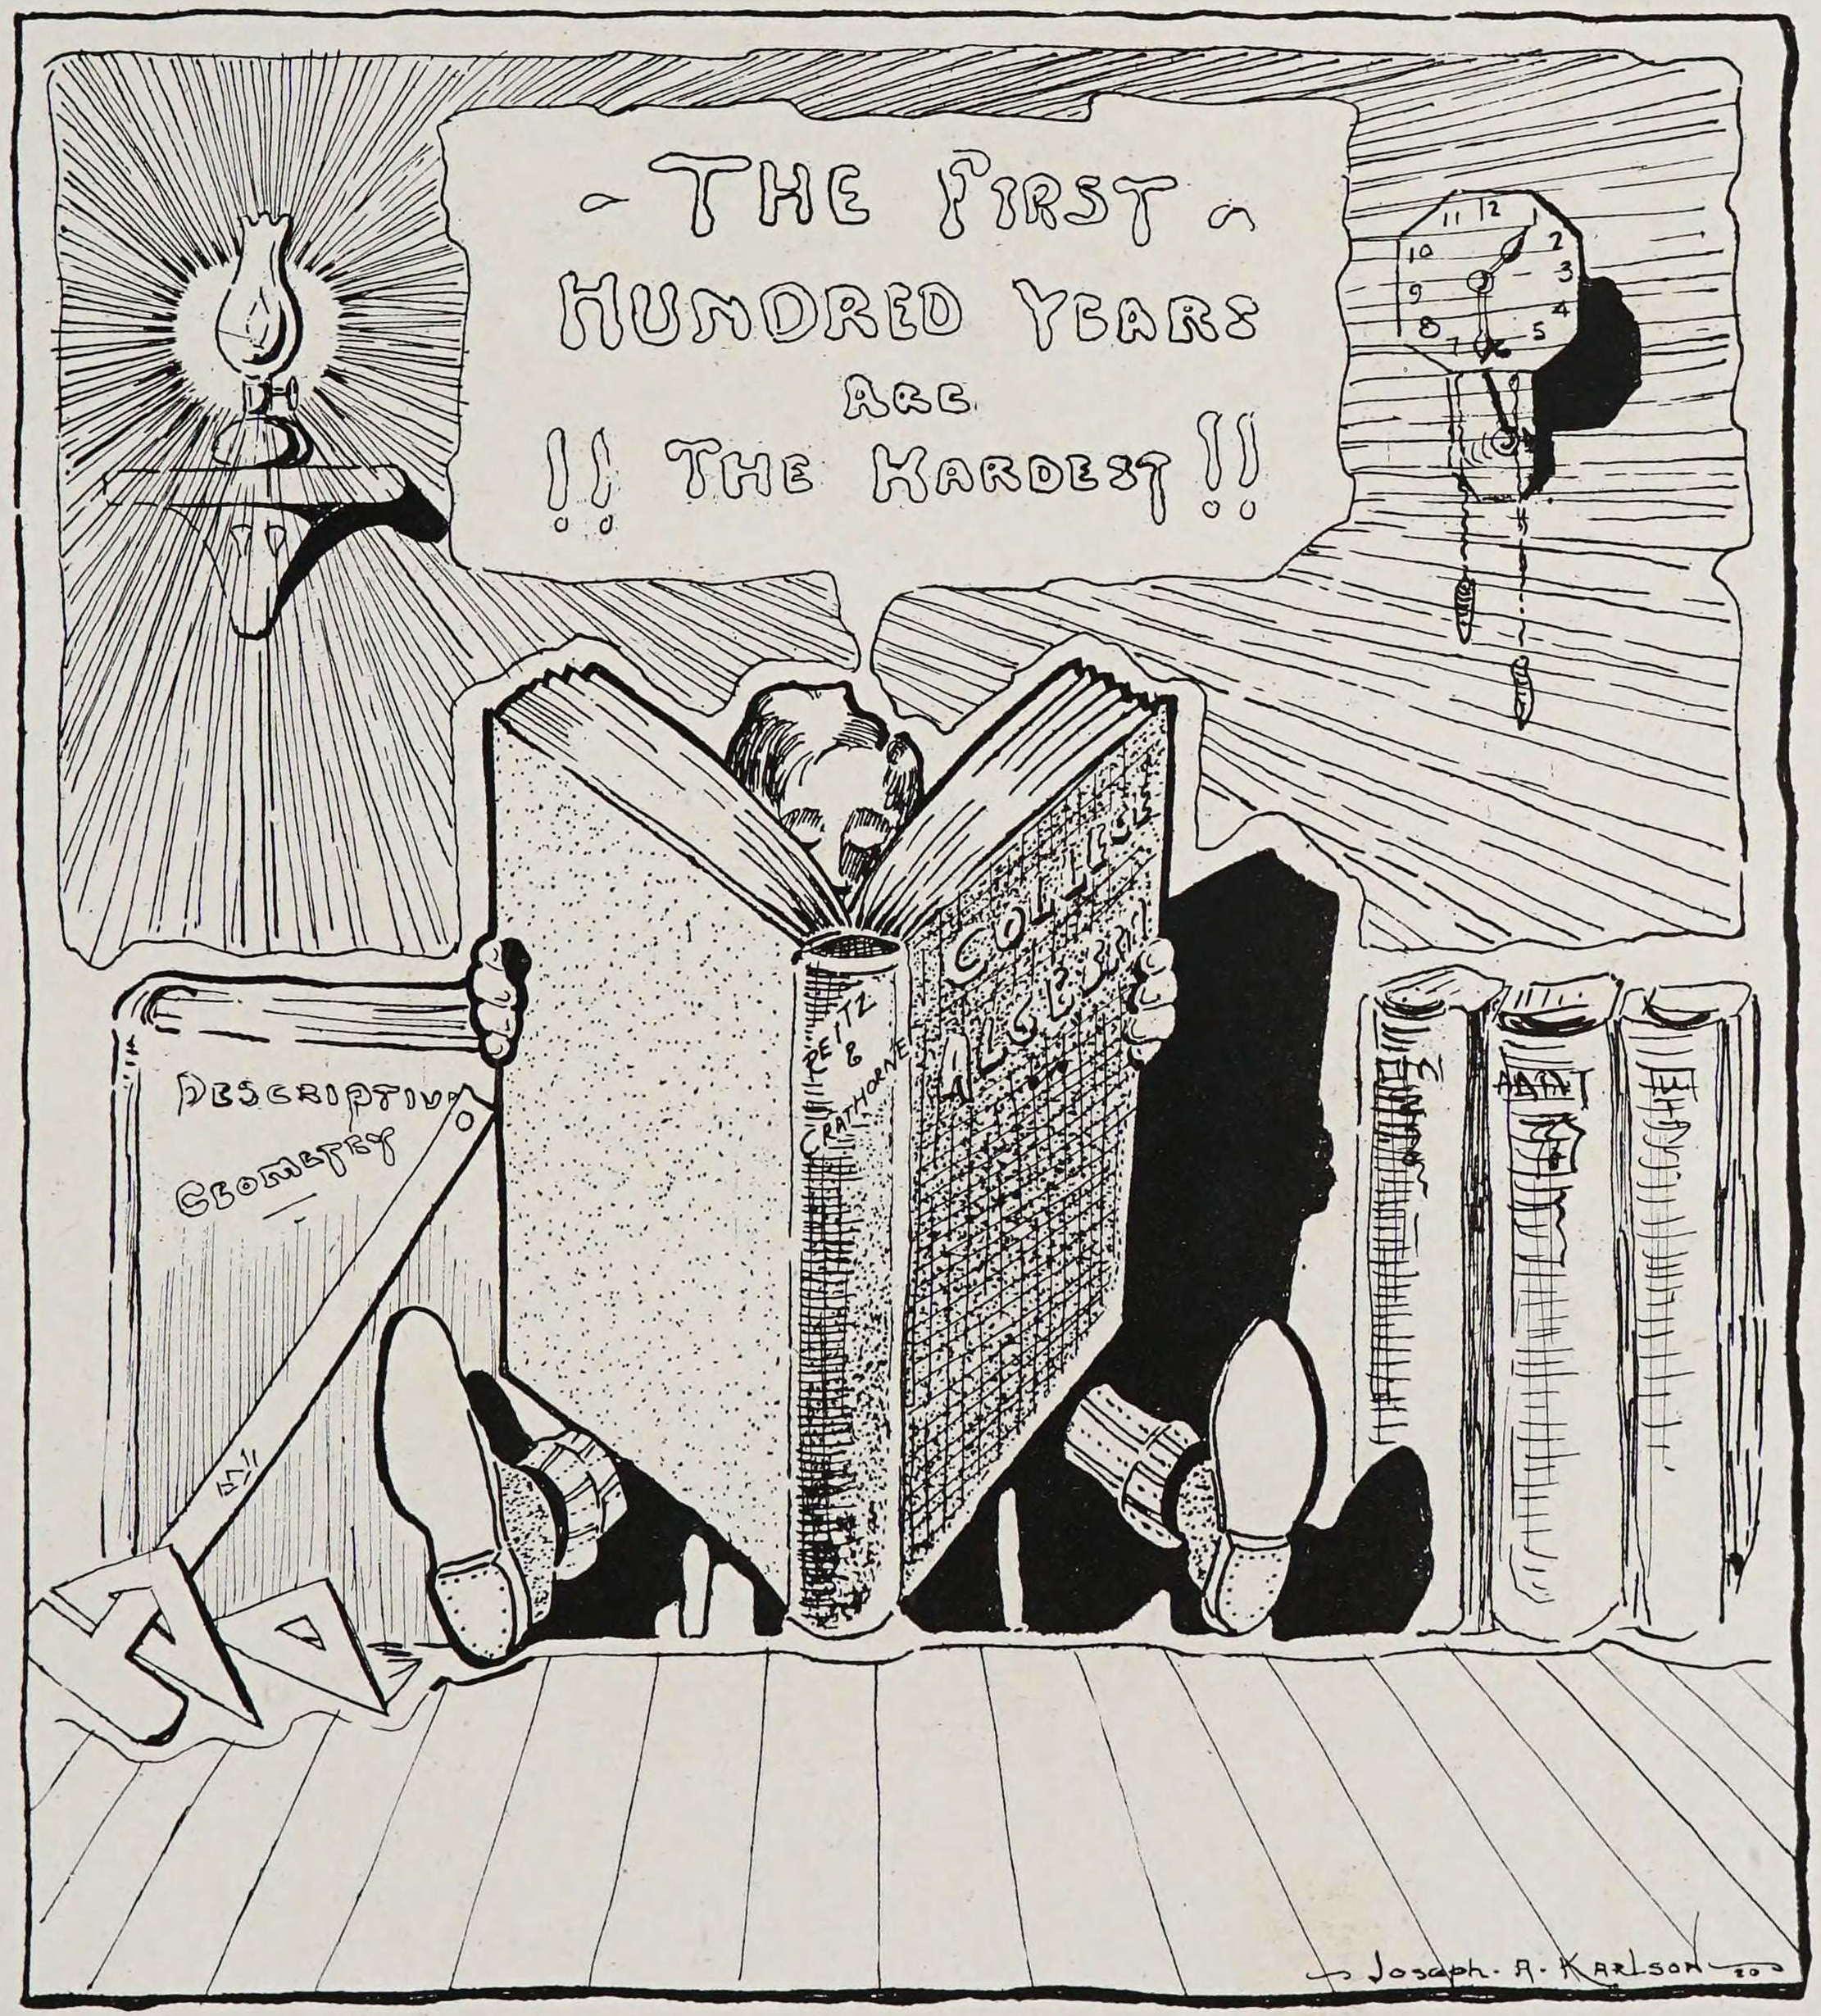 - THE FIRST -
HUNDRED YEARS
ARE
!! THE HARDEST !!
11 12 1
10 2
9 3
8 4
7 6 5
COLLEGE
ALGEBRA
REITZ
&
CRATHORNE
DESCRIPTIVE
GEOMETRY
Joseph. A. KARLSON 20